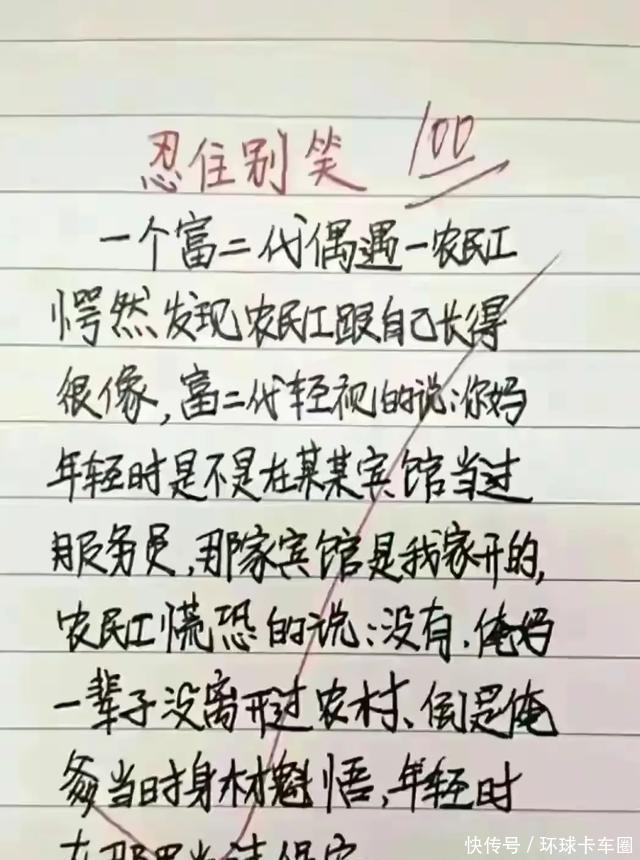 忍住别笑 100
一个富二代偶遇一农民工
愕然发现农民工跟自己长得
很像,富二代轻视的说:你妈
年轻时是不是在某某宾馆当过
服务员,那家宾馆是我家开的,
农民工慌恐的说:没有,俺妈
一辈子没离开过农村、倒是俺
爹当时身材魁悟,年轻时
在那里当过保安
快传号/环球卡车圈